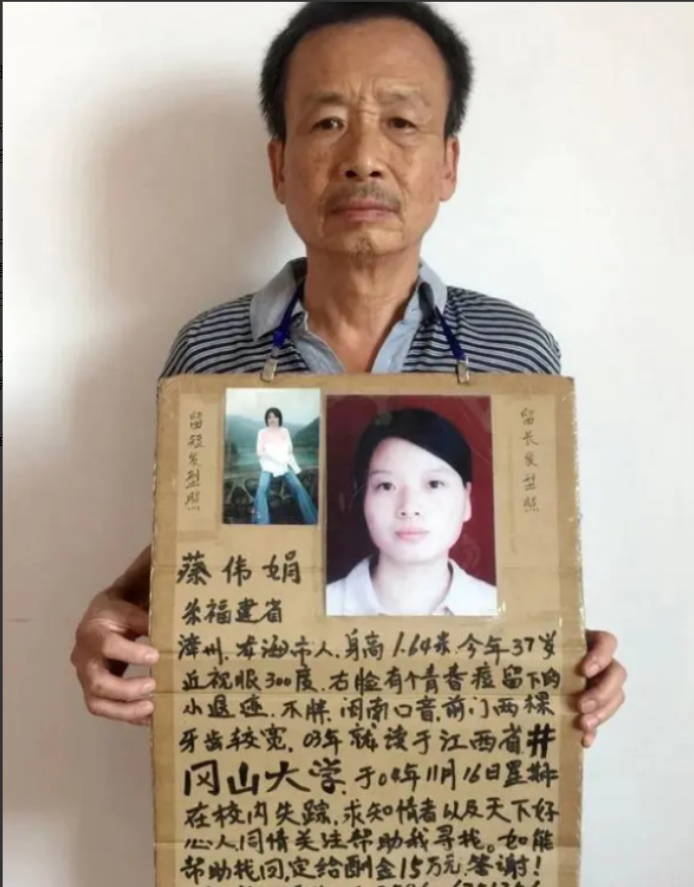 留短发型照
留长发型照
蔡伟娟
福建省
漳州.龙海市人.身高1.64米.今年37岁
近视眼300度.右脸有个青春痘留下的
小退迹.不胖.闽南口音.前门两棵
牙齿较宽.03年就读于江西省井
冈山大学.于04年11月16日星期
在校内失踪.求知情者以及天下好
心人同情关注帮助我寻找。如能
帮助找回,定给酬金15万元答谢!